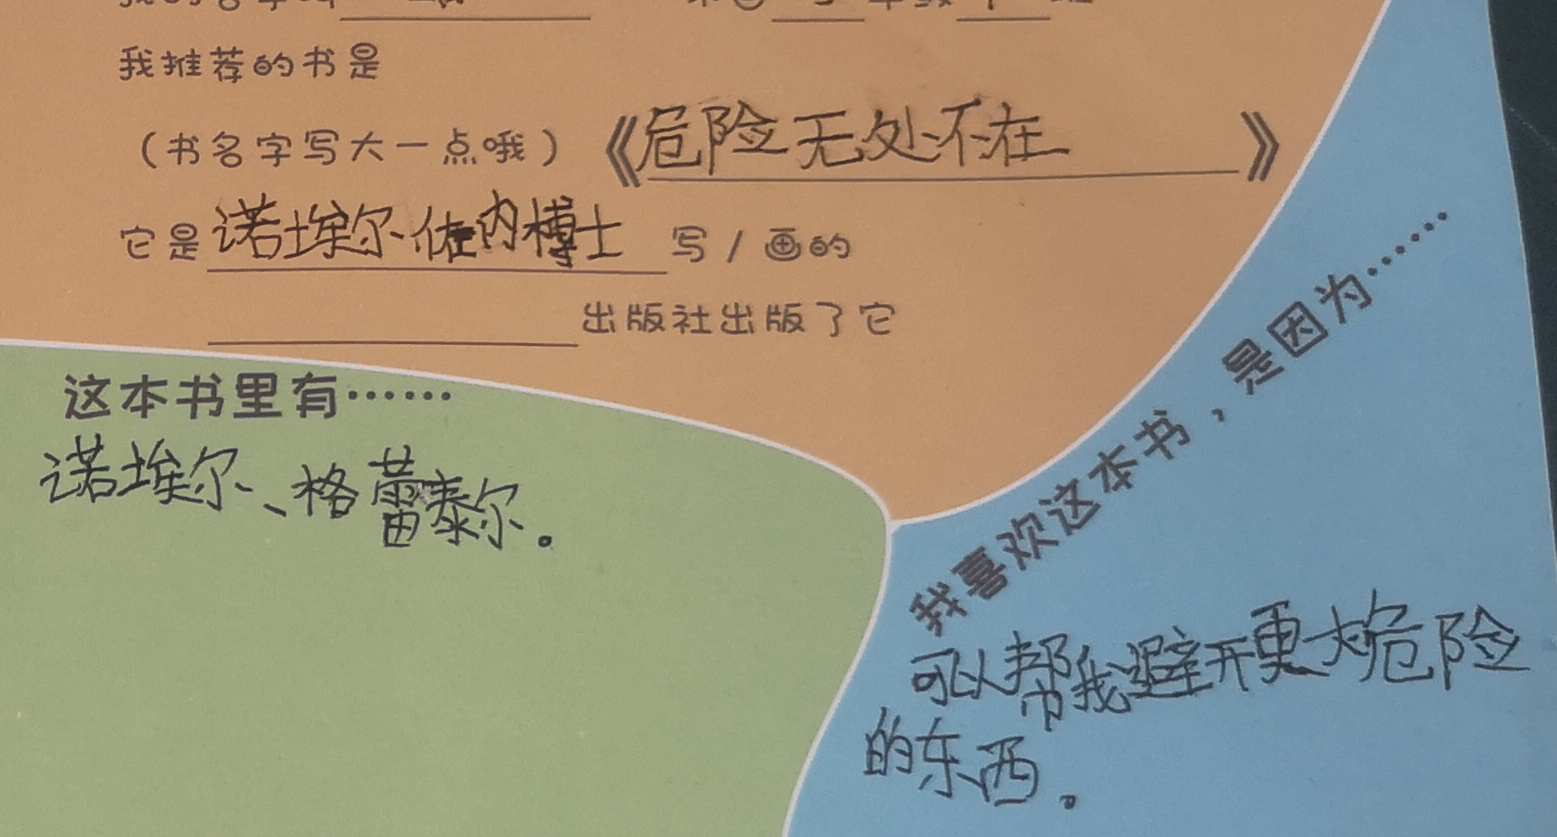 我推荐的书是
（书名字写大一点哦）《危险无处不在》
它是诺埃尔·佐内博士写/画的
出版社出版了它
这本书里有……
诺埃尔、格蕾泰尔。
我喜欢这本书，是因为……
可以帮我避开更大危险
的东西。